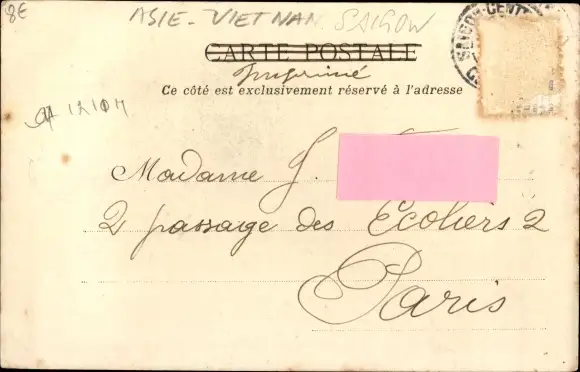 8€
ASIE - VIETNAM. SAIGON
SAIGON-CENTRAL
CARTE POSTALE
Imprimé
Ce côté est exclusivement réservé à l'adresse
Madame G
2 passage des Ecoliers 2
Paris